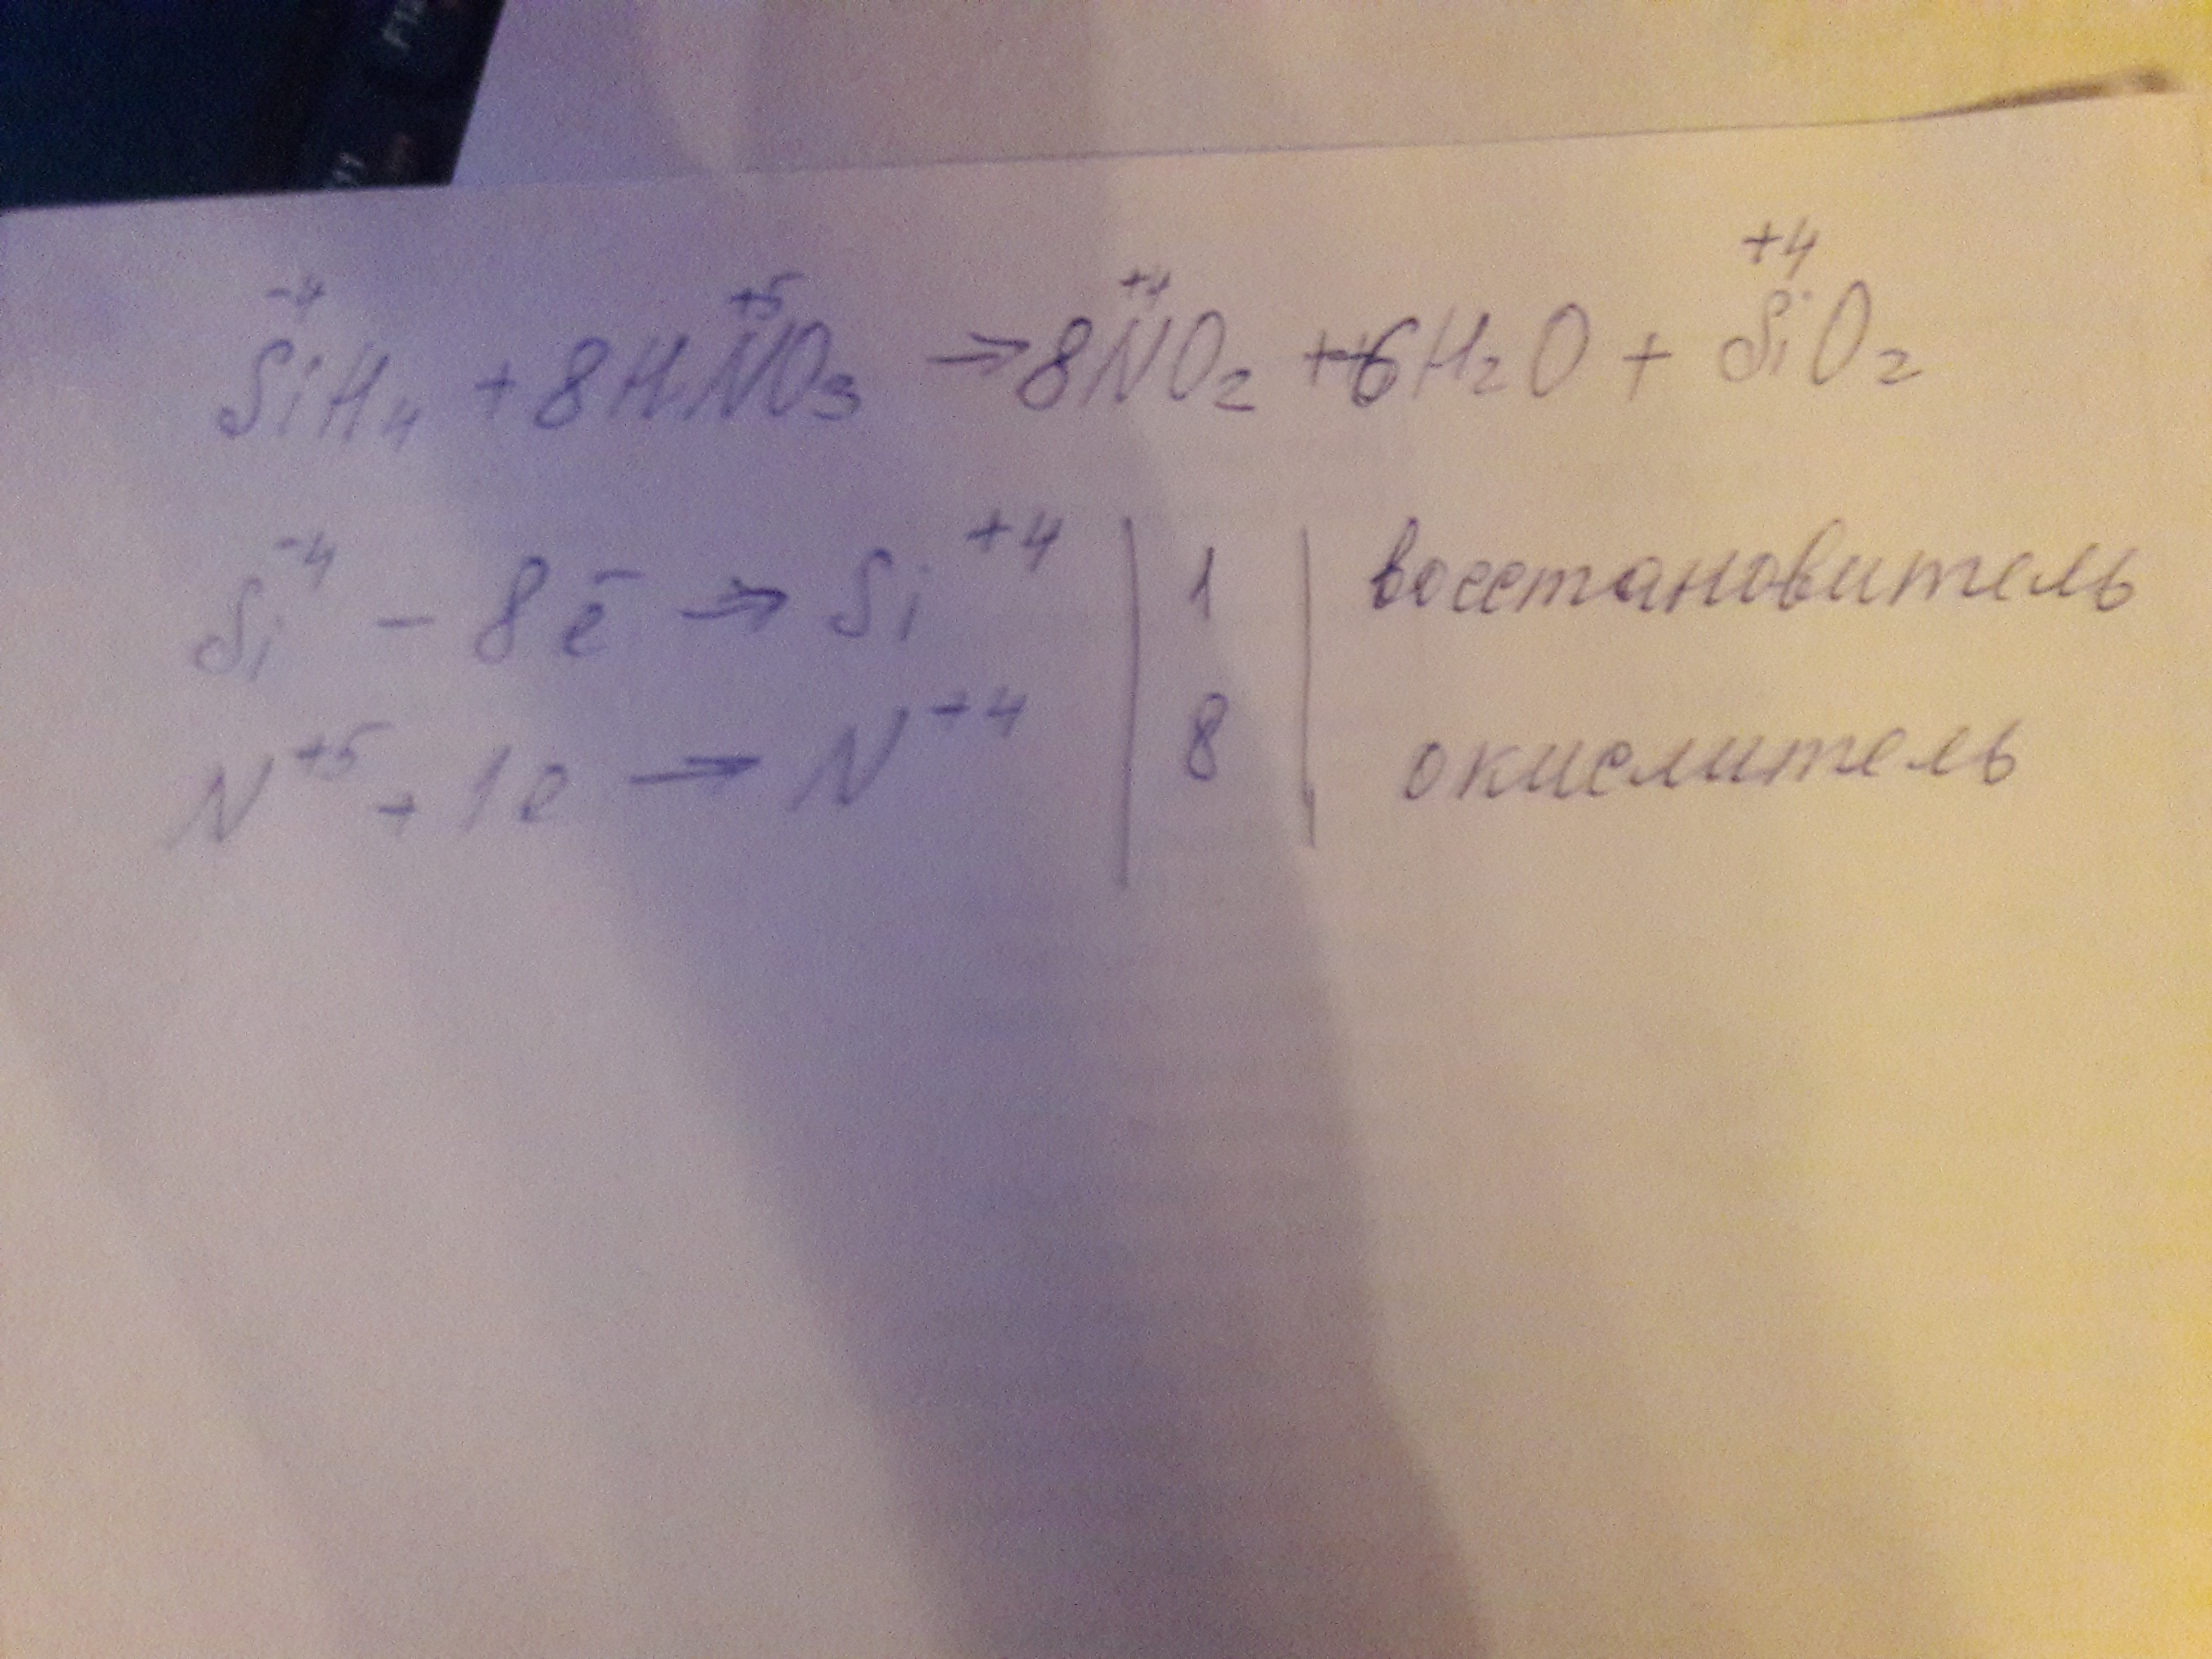 -4 +5 +4 +4
SiH₄ + 8HNO₃ → 8NO₂ + 6H₂O + SiO₂
Si⁻⁴ - 8ē → Si⁺⁴ | 1 | восстановитель
N⁺⁵ + 1e → N⁺⁴ | 8 | окислитель